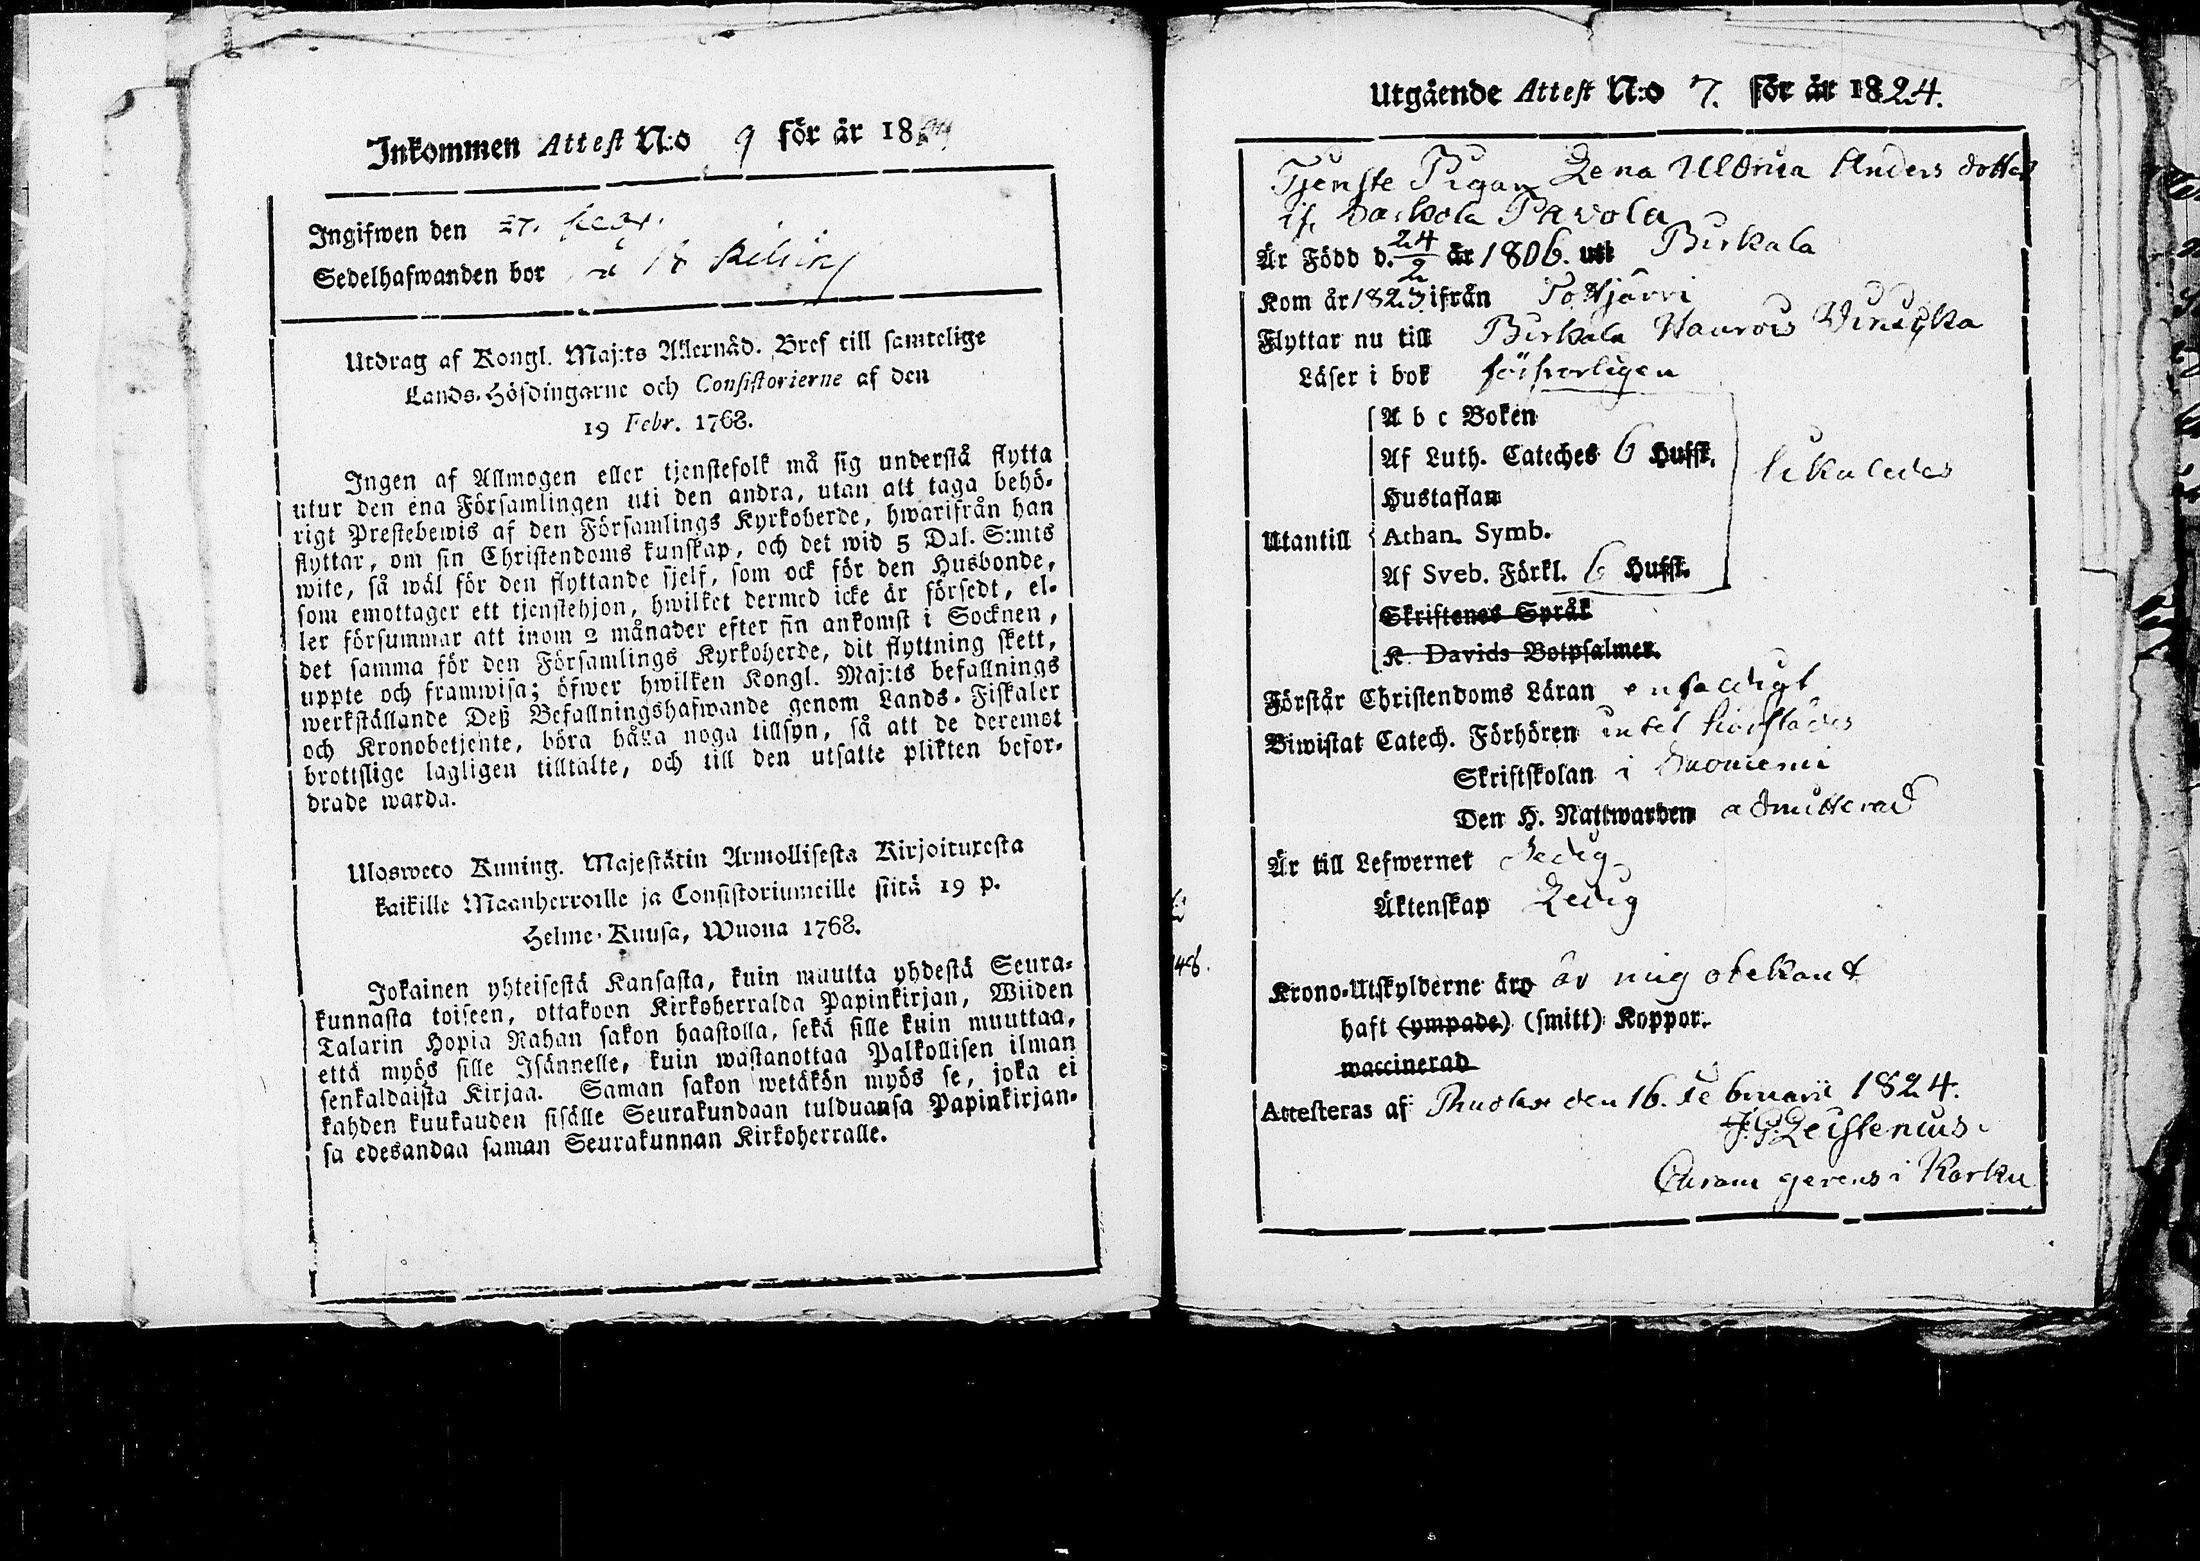 Inkommen Attest N:o 9 för år 1824
Ingifwen den 27.
Sedelhafwanden bor
Utdrag af Kongl. Maj:ts Allernåd. Bref till samtelige
Lands-Höfdingarne och Consistorierne af den
19 Febr. 1768.
Ingen af Allmogen eller tjenstefolk må sig understå flytta
utur den ena Församlingen uti den andra, utan att taga behö-
rigt Prestebewis af den Församlings Kyrkoherde, hwarifrån han
flyttar, om sin Christendoms kunskap, och det wid 5 Dal. S:mts
wite, så wäl för den flyttande sjelf, som ock för den Husbonde,
som emottager ett tjenstehjon, hwilket dermed icke är försedt, el-
ler försummar att inom 2 månader efter sin ankomst i Socknen,
det samma för den Församlings Kyrkoherde, dit flyttning skett,
uppte och framwisa; öfwer hwilken Kongl. Maj:ts befallnings
werkställande Deß Befallningshafwande genom Lands-Fiskaler
och Kronobetjente, böra hålla noga tillsyn, så att de deremot
brottslige lagligen tilltalte, och till den utsatte plikten befor-
drade warda.
Ulosweto Kuning. Majestätin Armollisesta Kirjoituxesta
kaikille Maanherroille ja Consistoriumeille siitä 19 p.
Helme-Kuusa, Wuona 1768.
Jokainen yhteisestä Kansasta, kuin muutta yhdestä Seura-
kunnasta toiseen, ottakoon Kirkoherralda Papinkirjan, Wiiden
Talarin Hopia Rahan sakon haastolla, sekä sille kuin muuttaa,
että myös sille Isännelle, kuin wastanottaa Palkollisen ilman
senkaldaista Kirjaa. Saman sakon wetäkön myös se, joka ei
kahden kuukauden sisälle Seurakundaan tulduansa Papinkirjan-
sa edesandaa saman Seurakunnan Kirkoherralle.
Utgående Attest N:o 7. för år 1824.
Tjenste Pigan Lena Uldrica Anders dotter
if. Pavola
Är Född d. 24/2 år 1806. uti Birkala
Kom år 1823 ifrån Tottjärvi
Flyttar nu till Birkala
Läser i bok försvarligen
A b c Boken
Af Luth. Cateches 6 Hufst.
likaledes
Hustaflan
Utantill Athan. Symb.
Af Sveb. Förkl. 6 Hufst.
Skriftenes Språk
K. Davids Botpsalmer.
Förstår Christendoms Läran enfaldigt
Biwistat Catech. Förhören
Skriftskolan i Suoniemi
Den H. Nattwarden admitterad
Är till Lefwernet Sedig
Äktenskap Ledig
Krono-Utskylderne äro är mig obekant
haft (ympade) (smitt) Koppor.
waccinerad
Attesteras af den 16. Februarii 1824.
J. G. Leistenius.
Curam gerens i Karku